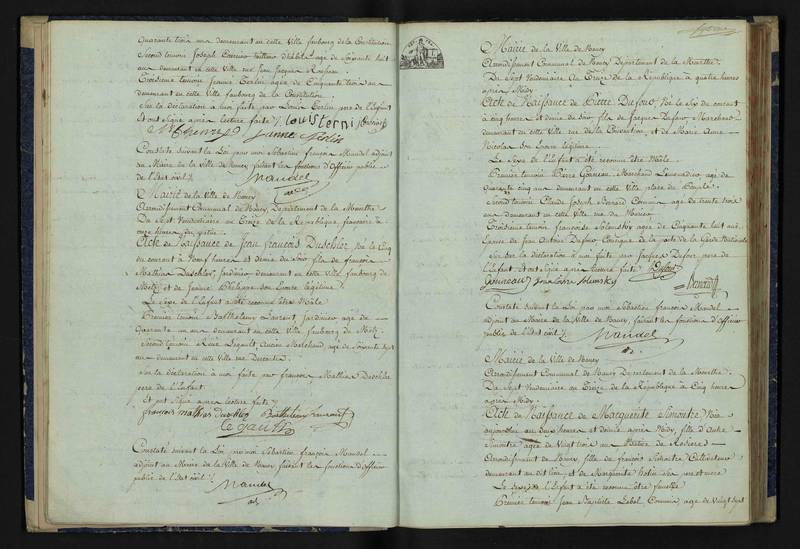 quarante trois ans demeurant en cette Ville faubourg de la Constitution
Second temoin Joseph tailleur d'habits agé de soixante huit
ans demeurant en cette Ville rue Jean Jacques Rousseau
Troisieme temoin Jeanne Terlin agée de Cinquante trois ans
demeurant en cette Ville faubourg de la Constitution.
Sur la déclaration a moi faite par Louis Terlin pere de l'Enfant
Et ont Signé après lecture faite
Constaté suivant la Loi par moi Sébastien françois Mandel adjoint
au Maire de la Ville de Nancy faisant les fonctions d'Officier public
de l'état civil
Mandel
adj
Mairie de la Ville de Nancy
Arrondissement Communal de Nancy Département de la Meurthe
Du Sept Vendémiaire an Treize de la République française à
onze heures du matin
Acte de Naissance de Jean françois Duschler Né le Cinq
du courant à neuf heures et demie du Soir fils de françois
Mathias Duschler Jardinier demeurant en cette Ville faubourg de
Metz et de Jeanne son Epouse légitime
Le Sexe de l'Enfant a été reconnu être Mâle
Premier temoin Barthelemy Laurant Jardinier agé de
quarante un ans demeurant en cette Ville faubourg de Metz
Second temoin René Legault ancien Marchand agé de soixante sept
ans demeurant en cette Ville rue
Sur la déclaration à moi faite par françois Mathias Duschler
pere de l'Enfant
Et ont Signé après lecture faite
françois mathias Duschler Barthelemy Laurant
Le gault
Constaté suivant la Loi par moi Sébastien françois Mandel
adjoint au Maire de la Ville de Nancy faisant les fonctions d'Officier
public de l'état civil
Mandel
adj
Mairie de la Ville de Nancy
Arrondissement Communal de Nancy Département de la Meurthe
Du Sept Vendémiaire an Treize de la République à quatre heures
après Midy
Acte de Naissance de Pierre Dufour Né le Six du courant
à cinq heures et demie du soir fils de Jacques Dufour Marchand
demeurant en cette Ville rue de la Constitution et de Marie Anne
Nicolas son Epouse légitime
Le Sexe de l'Enfant a été reconnu être Mâle
Premier temoin Pierre Marchand Limonadier agé de
quarante cinq ans demeurant en cette Ville place du Peuple
Second temoin Claude Joseph Bernard Commis agé de trente trois
ans demeurant en cette Ville rue
Troisieme temoin françoise agée de Cinquante huit ans
Epouse de Jean Antoine Dufour Concierge de la porte de la Garde Nationale
Sur la déclaration à moi faite par Jacques Dufour pere de
l'Enfant Et ont Signé après lecture faite Dufour
Constaté suivant la Loi par moi Sébastien françois Mandel
adjoint au Maire de la Ville de Nancy faisant les fonctions d'Officier
public de l'état civil
Mandel
adj
Mairie de la Ville de Nancy
Arrondissement Communal de Nancy Département de la Meurthe
Du Sept Vendémiaire an Treize de la République à Cinq heures
après Midy
Acte de Naissance de Marguerite Simontre Née
aujourd'hui à deux heures et demie après Midy, fille d'Anne
Simontre agée de Vingt trois ans Native de Rosieres
Arrondissement de Nancy fille de françois Simontre Cultivateur
demeurant au dit lieu et de Marguerite ses pere et mere
Le Sexe de l'Enfant a été reconnu être femelle
Premier temoin Jean Baptiste Lebel Commis agé de Vingt sept